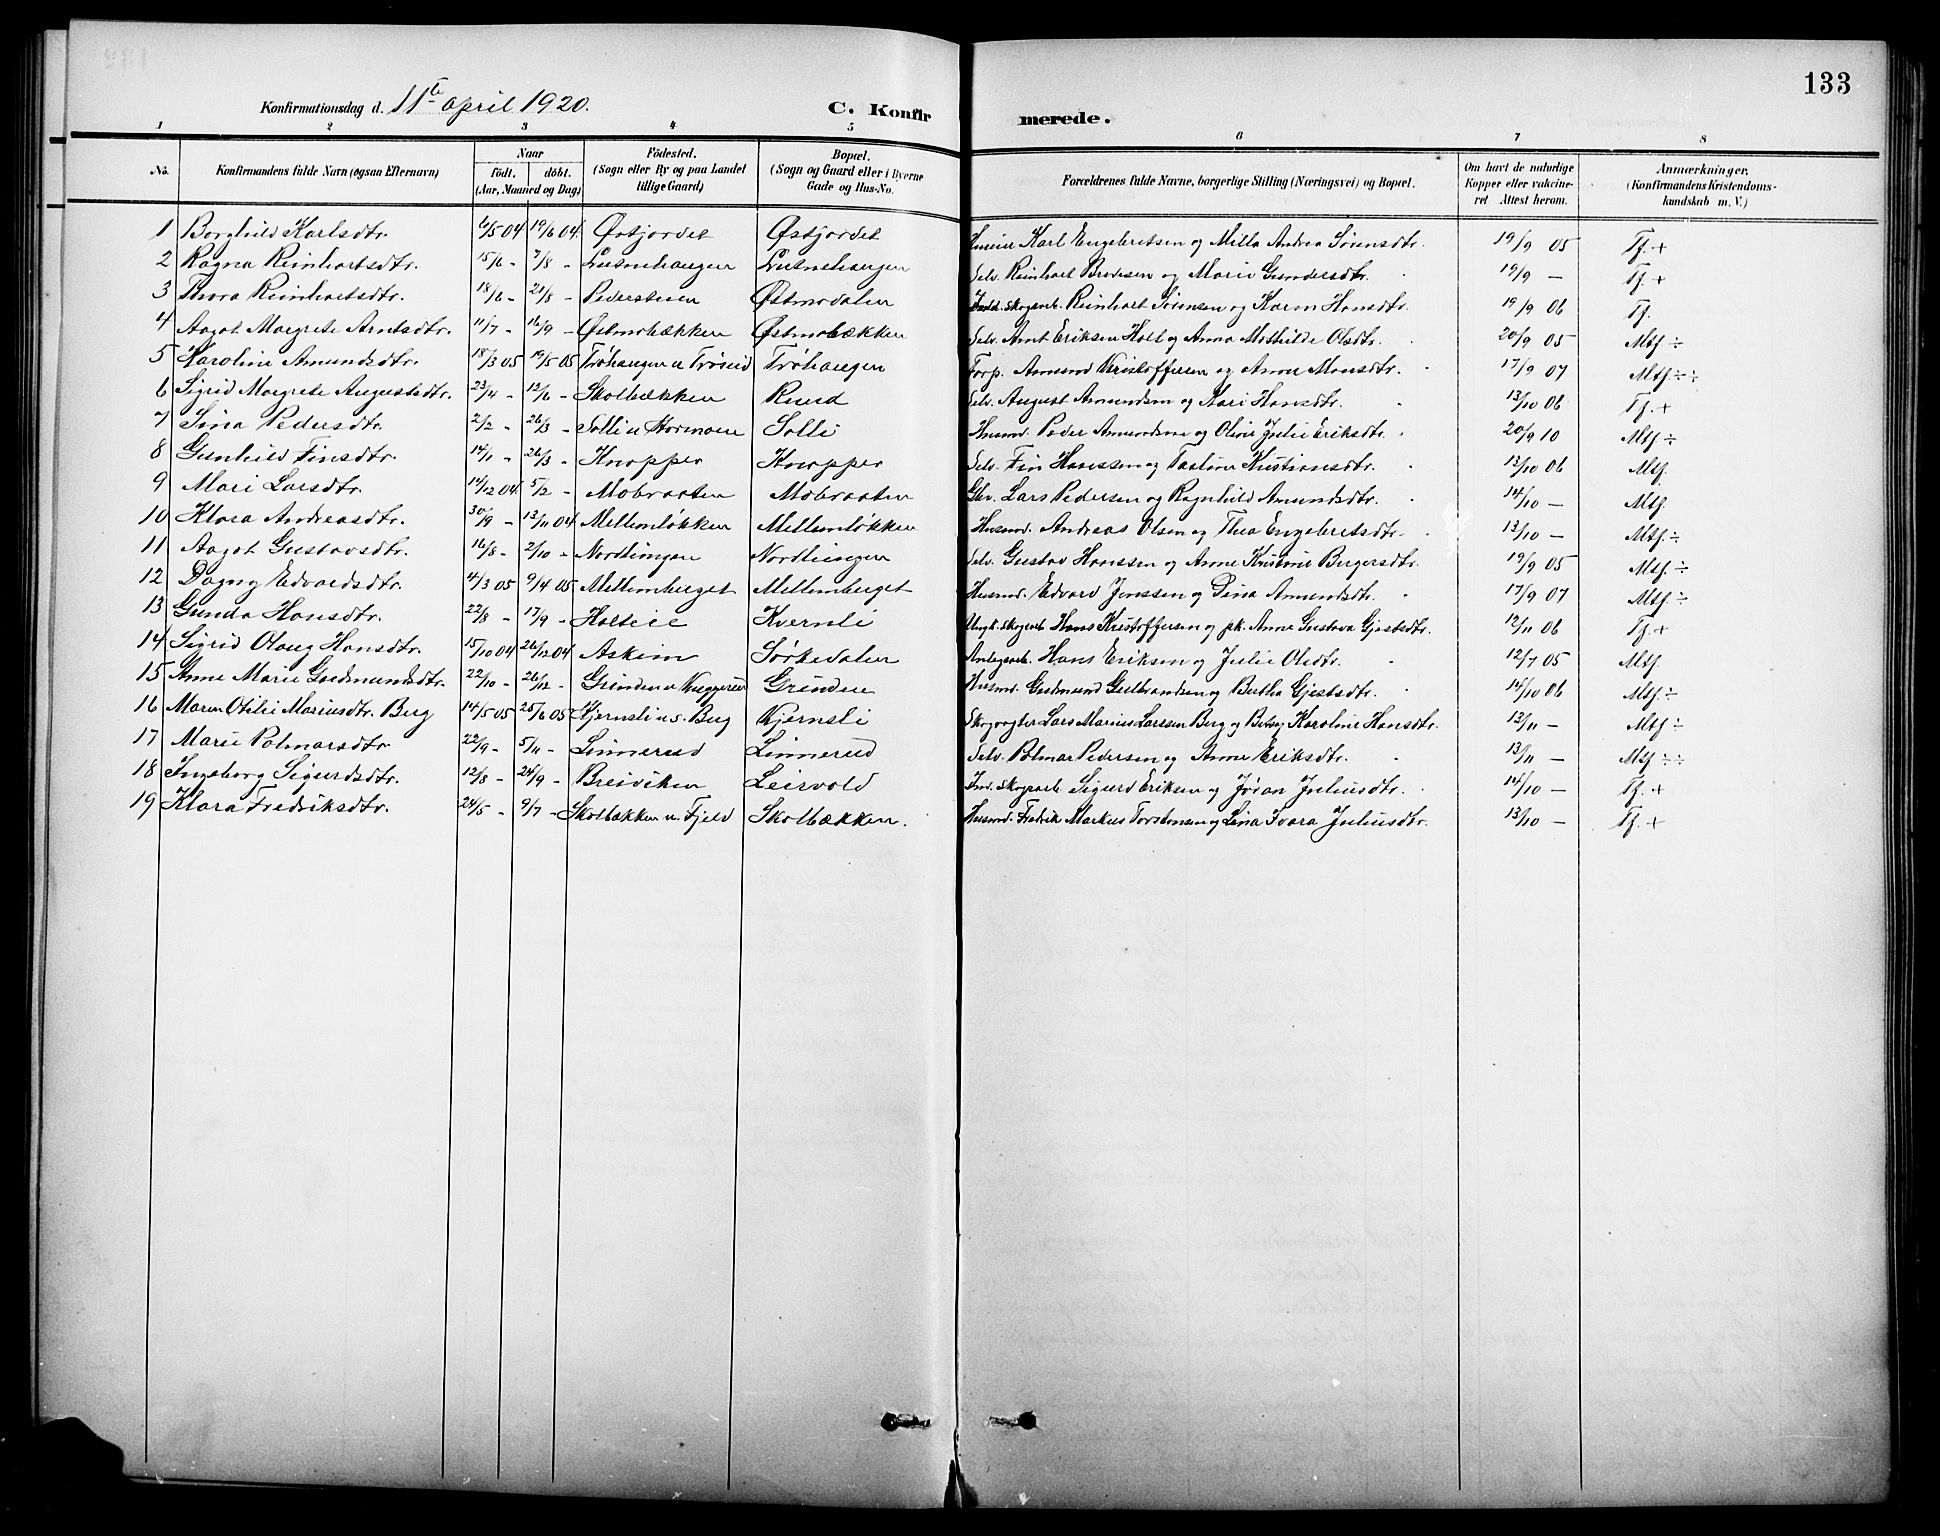 133
Konfirmationsdag d. 11te april 1920. C. Konfirmerede.
1 2 3 4 5 6 7 8
No. Konfirmandens fulde Navn (ogsaa Efternavn) Naar født. døbt. (Aar, Maaned og Dag) Fødested. (Sogn eller By og paa Landet tillige Gaard) Bopæl. (Sogn og Gaard eller i Byerne Gade og Hus-No. Forældrenes fulde Navne, borgerlige Stilling (Næringsvei) og Bopæl. Om havt de naturlige Kopper eller vakcineret Attest herom. Anmærkninger, (Konfirmandens Kristendomskundskab m. V.)
1 Borghild Karlsdtr. 6/5 04 19/6 04. Østjordet Østjordet Karl Engebretsen og Milla Andrea Sørensdtr. 19/9 05 Tf. +
2 Ragna Reinhartsdtr. 15/6 - 7/8 - Lusnehaugen Lusnehaugen Selv. Reinhart Bredesen og Marie Gundersdtr. 19/9 — Tf. +
3 Thora Reinhartsdtr. 18/6 - 21/8 - Pedersteien Østmodalen Skogarb. Reinhart Sørensen og Karen Hansdtr. 19/9 06 Tf.
4 Aagot Margrete Arntsdtr. 11/7 - 16/9 - Østmobækken Østmobækken Selv. Arnt Eriksen Holt og Anna Mathilde Olsdtr. 20/9 05 Mtf ÷
5 Karoline Amundsdtr. 18/3 05 19/5 05 Trøhaugen u. Trøsud Trøhaugen Forp. Amund Kristoffersen og Anne Monsdtr. 17/9 07 Mtf. ÷ ÷
6 Sigrid Margrete Augustsdtr. 23/4 - 12/6 - Skolbækken Ruud Selv. August Amundsen og Kari Hansdtr. 13/10 06 Tf. +
7 Sina Pedersdtr. 2/2 - 26/3 - Solli u. Hormoen Solli Husmd. Peder Amundsen og Oline Julie Eriksdtr. 20/9 10 Mtf. ÷
8 Gunhild Finsdtr. 14/11 - 26/3 - Knapper Knapper Selv. Fin Hanssen og Pauline Kristiansdtr. 13/10 06 Mtf.
9 Mari Larsdtr. 14/12 04. 5/2 - Mobraaten Mobraaten Gbr. Lars Pedersen og Ragnhild Amundsdtr. 14/10 — Mtf.
10 Klara Andreasdtr. 30/9 - 13/11 04 Mellemløkken Mellemløkken Husmd. Andreas Olsen og Thea Engebretsdtr. 13/10 — Mtf. ÷
11 Aagot Gustavsdtr. 16/8 - 2/10 - Nordlingen Nordlingen Selv. Gustav Hanssen og Anne Kristine Birgersdtr. 19/9 05 Mtf. ÷
12 Dagny Edvardsdtr. 4/3 05 9/4 05 Mellemberget Mellemberget Husmd. Edvard Jenssen og Dina Amundsdtr. 17/9 07 Mtf. ÷
13 Gunda Hansdtr. 22/8 - 17/9 - Holteie Kvernsli Ungk. Skogarb Hans Kristoffersen og pk. Anne Gustava Gjestsdtr. 12/11 06 Tf. +
14 Sigrid Olaug Hansdtr. 15/10 04 26/12 04 Askim Sørkedalen Anlegsarb. Hans Eriksen og Julie Olsdtr. 12/7 05 Mtf.
15 Anne Marie Gudmundsdtr. 22/10 - 26/12 - Grinden u. Grinden Husmd. Gudmund Gulbrandsen og Bertha Gjestsdtr. 14/10 06 Mtf. ÷
16 Maren Otilie Mariusdtr. Berg 14/5 05 25/6 05 Kjernsli u. s. Berg Kjernsli Skogvogter Lars Marius Larssen Berg og Betsy Karoline Hansdtr. 13/11 — Mtf. ÷
17 Marie Polmarsdtr. 22/9 - 5/11 - Linnerud Linnerud Selv. Polmar Pedersen og Anne Eriksdtr. 13/11 — Mtf. ÷ ÷
18 Ingeborg Sigurdsdtr. 12/8 - 24/9 - Breiviken Leirvold Ind. Skogsarb Sigurd Eriksen og Jøran Juliusdtr. 14/10 — Tf. +
19 Klara Fredriksdtr. 24/5 - 9/7 - Skolbækken u. Fjeld Skolbækken. Husmd. Fredrik Markus Torstensen og Lina Ivara Juliusdtr. 13/10 — Tf. +